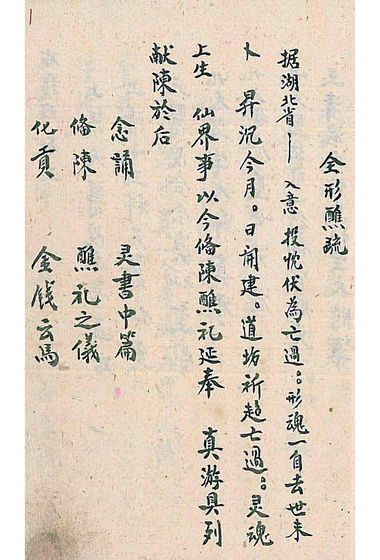 全形醮疏
据湖北省丨 入意 投忱伏為亡過〻形魂一自去世未
卜昇沉今月。日開建。道坊祈超亡過〻灵魂
上生 仙界事以今俻陳醮礼延奉 真游具列
献陳於后
念誦 灵書中篇
俻陳 醮礼之儀
化貢 金銭云馬